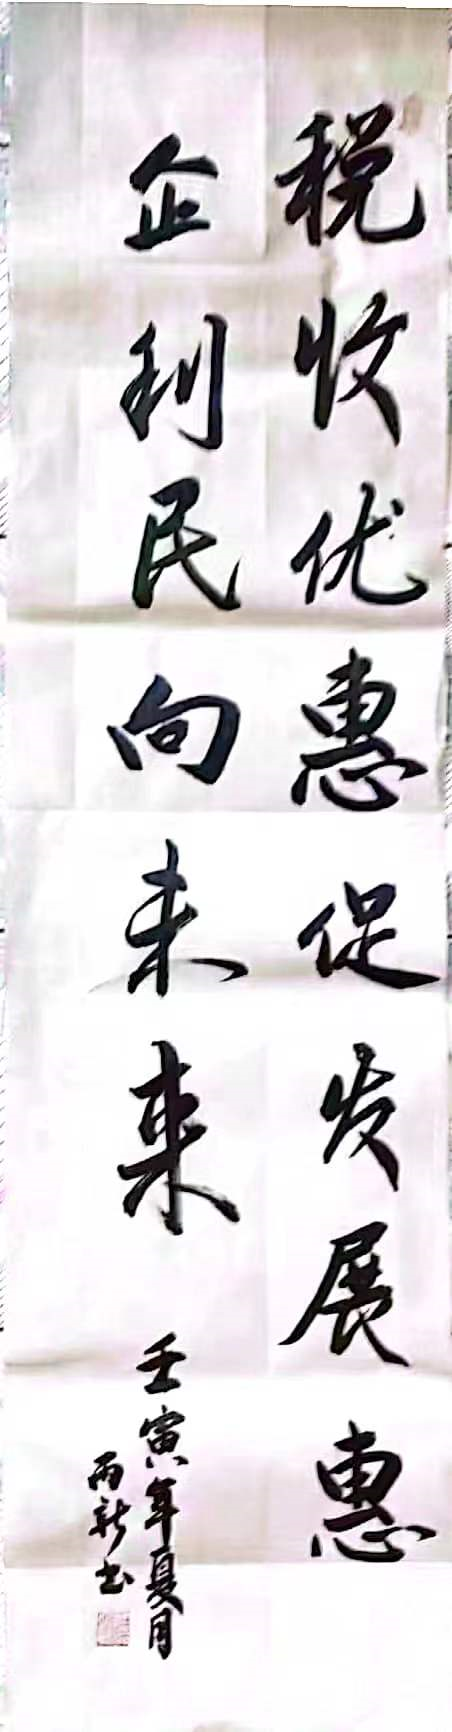 税收优惠促发展惠
企利民向未来
壬寅年夏月
雨新书